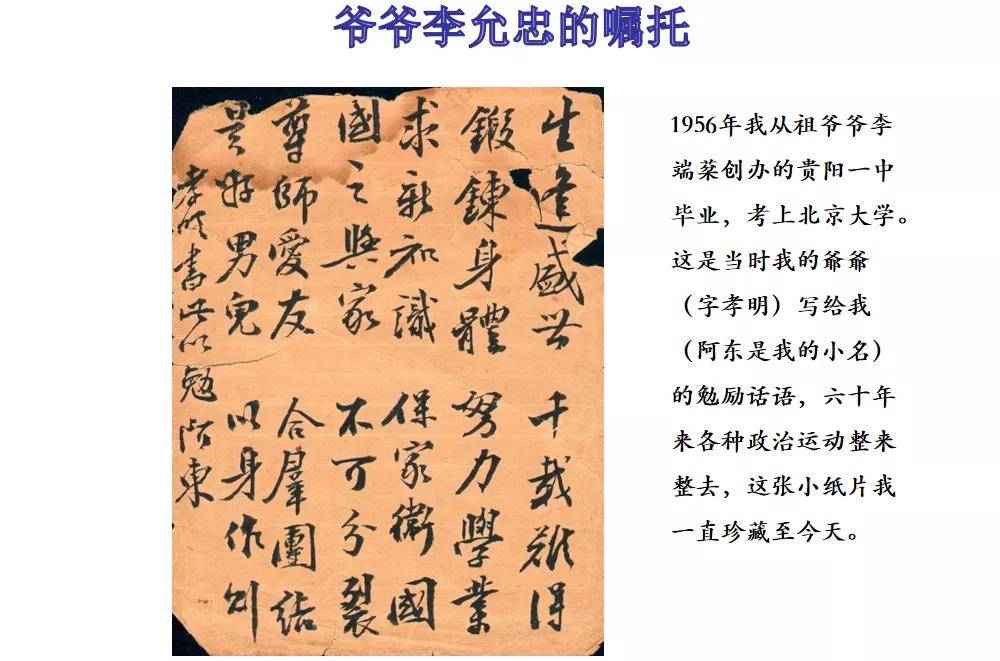 爷爷李允忠的嘱托
生逢盛世 千載難得
鍛鍊身體 努力學業
求新知識 保家衛國
國之與家 不可分裂
尊師愛友 合羣團結
是好男兒 以身作則
孝明書此以勉阿東
1956年我从祖爷爷李
端棻创办的贵阳一中
毕业，考上北京大学。
这是当时我的爺爺
（字孝明）写给我
（阿东是我的小名）
的勉励话语，六十年
来各种政治运动整来
整去，这张小纸片我
一直珍藏至今天。